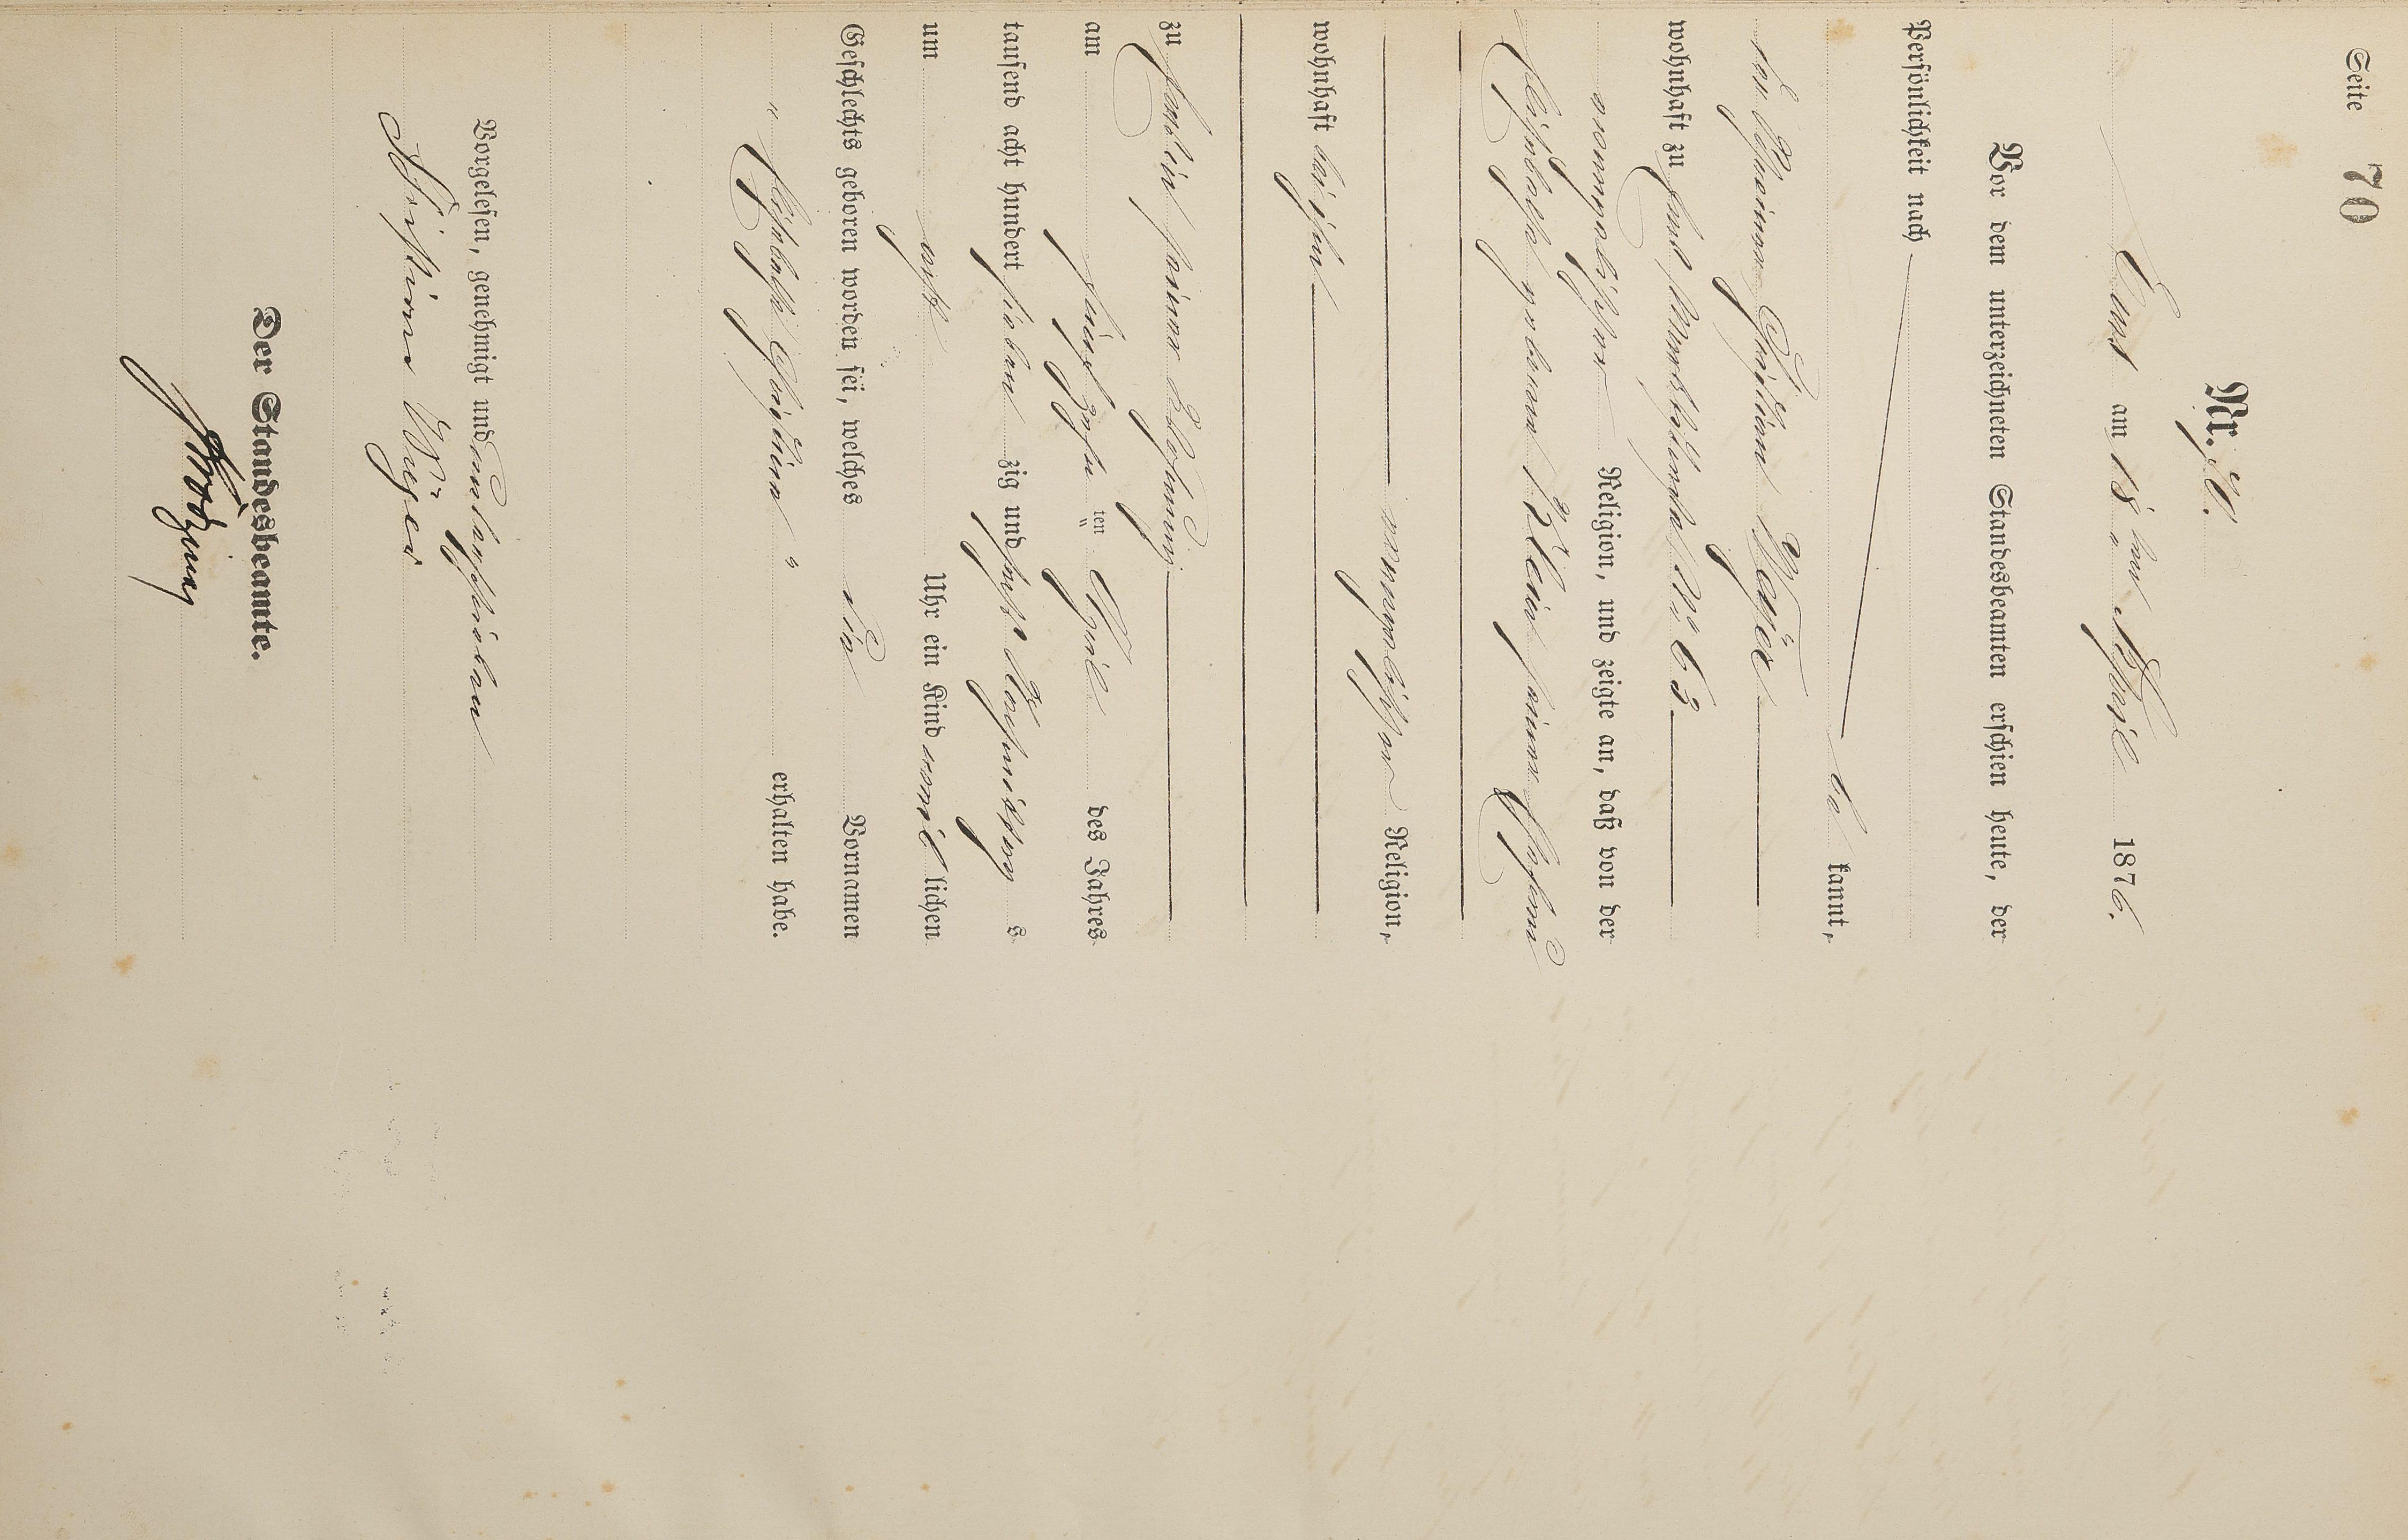 Seite 70
Nr. 70.
Ems am 18ten April 1876.
Vor dem unterzeichneten Standesbeamten erschien heute, der
Persönlichkeit nach
be kannt,
der Christian
wohnhaft zu Ems, No 63
evangelischer Religion, und zeigte an, daß von der
Elisabetha geborene Klein seiner Ehefrau
evangelischer Religion,
wohnhaft bei ihm
zu Ems in seiner Wohnung
am fünfzehn ten April des Jahres
tausend acht hundert sieben zig und sechs Nachmittags
um acht Uhr ein Kind weiblichen
Geschlechts geboren worden sei, welches die Vornamen
„Elisabetha Christina“ erhalten habe.
Vorgelesen, genehmigt und unterschrieben
Christian
Der Standesbeamte.